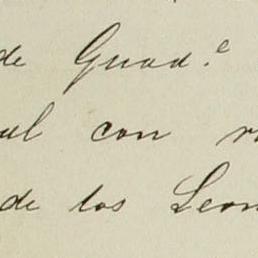 de Guad.e
con
de los Leon